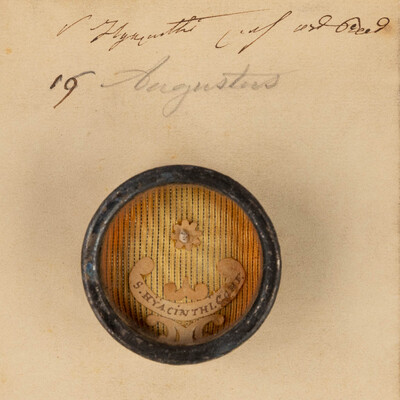 S Hyacinthi Conf ord Pred
16 Augustus
S. HYACINTHI. CONF.